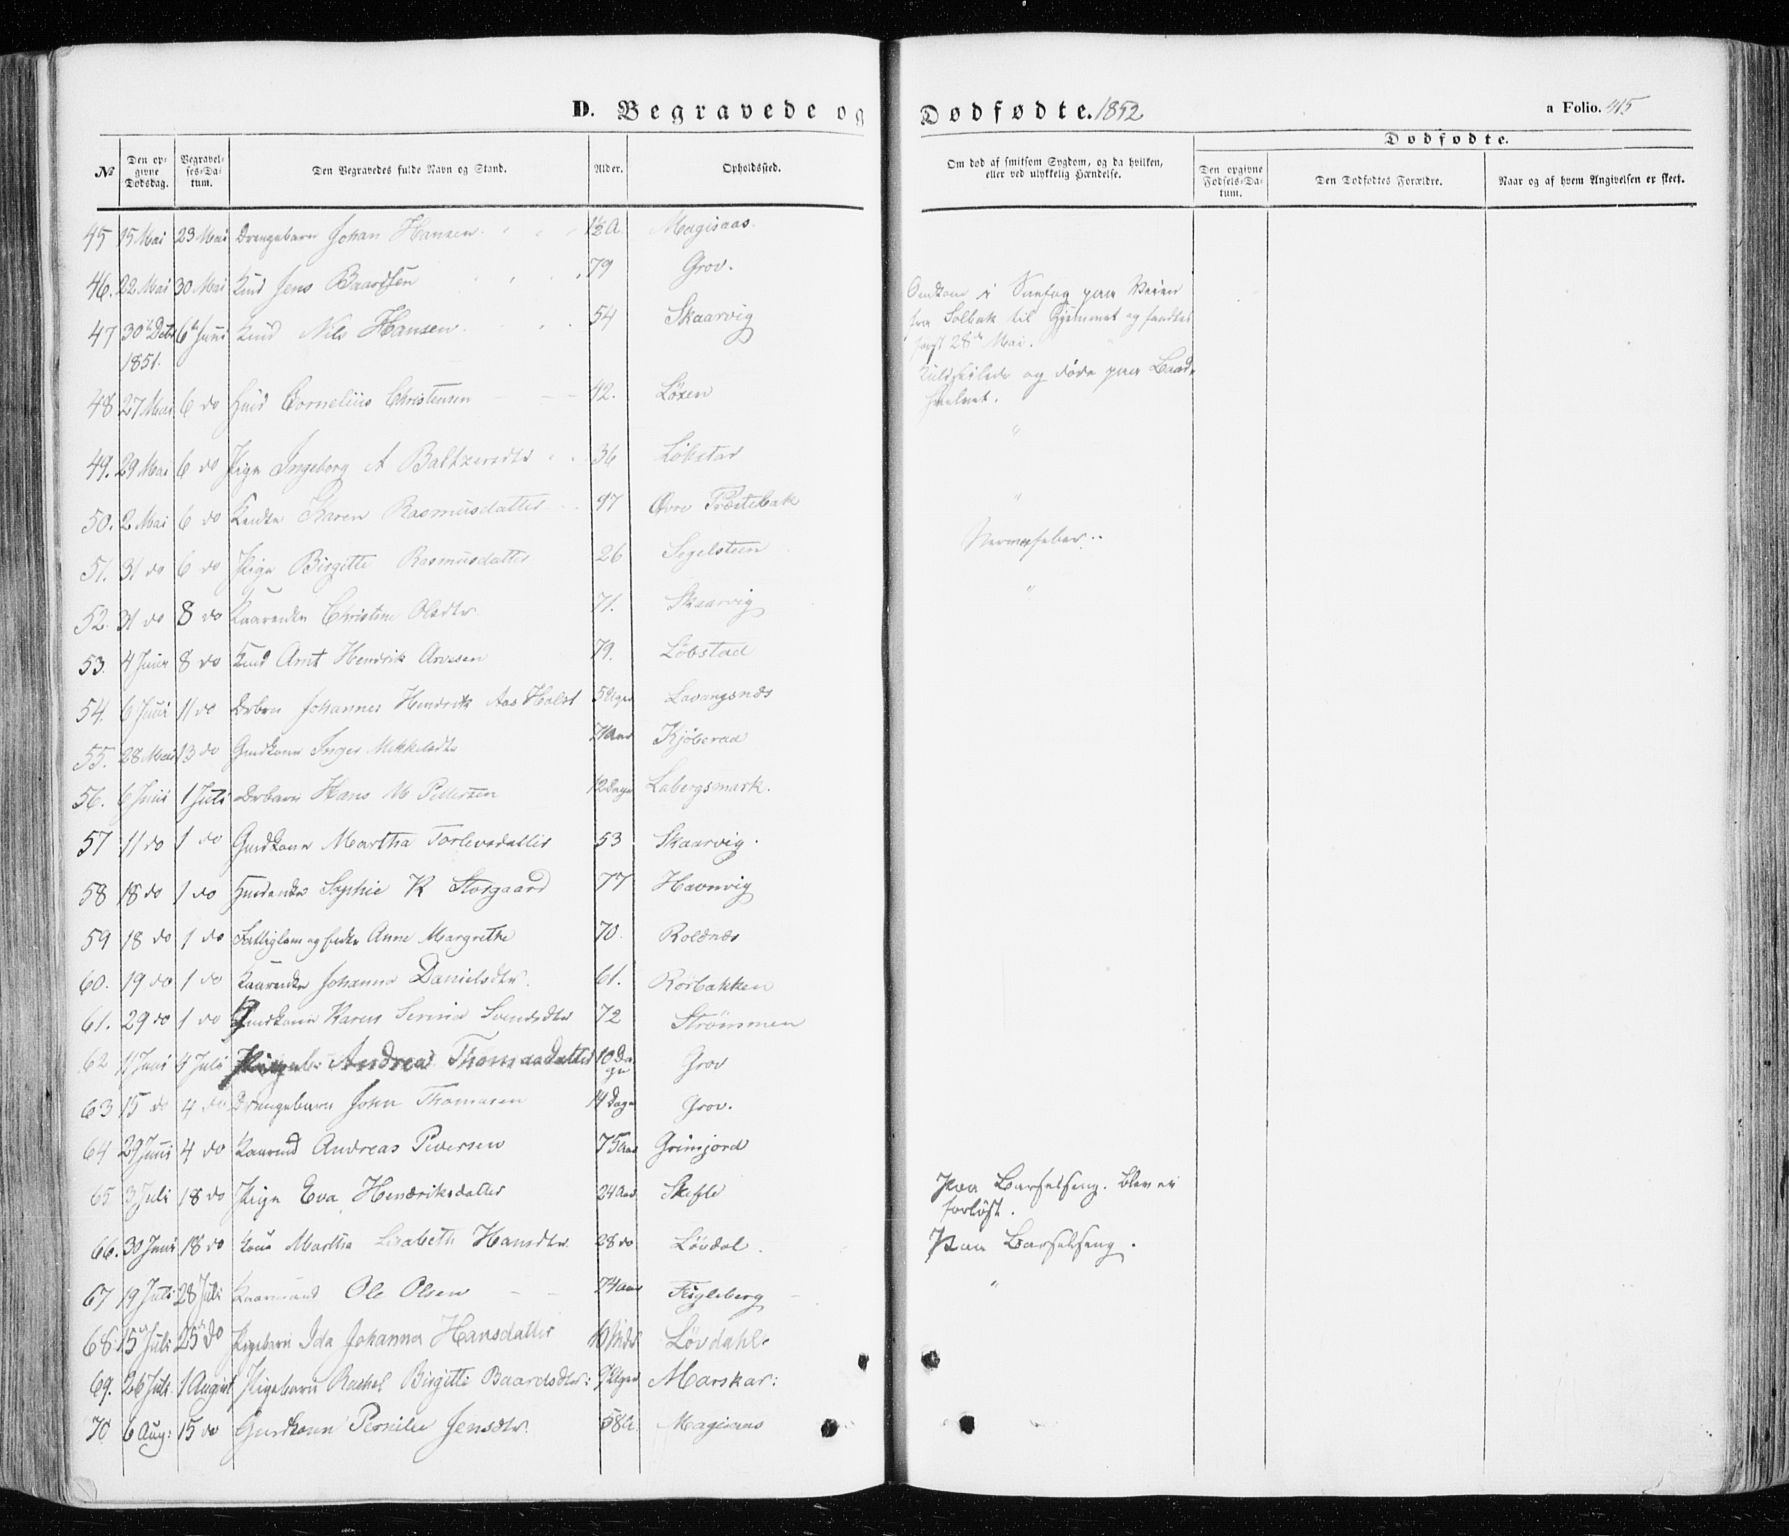 D. Begravede og Dødfødte. 1852
a Folio. 415.
Dødfødte.
№ Den opgivne Dødsdag. Begravelses-Datum. Den Begravedes fulde Navn og Stand. Alder. Opholdssted. Om død af smitsom Sygdom, og da hvilken, eller ved ulykkelig Hændelse. Den opgivne Fødsels-Datum. Den Dødfødtes Forældre. Naar og af hvem Angivelsen er skeet.
45 15 Mai 23 Mai Drengebarn Johan Hansen 1½ A. Magisaas
46. 22 Mai 30 Mai Jens Baardsen 79 Grov.
47 30 Dcbr 1851. 6 Juni Nils Hansen 54 Skaarvig
Omkom i Snefog paa Veien
fra Solbak til Hjemmet og fandtes
først 28 Mai.
48 27 Mai 6 do Cornelius Christensen 42. Løxen
og døde paa
49. 29 Mai 6 do Pige Ingeborg A Baltzersdtr 36 Løbstad
"
50. 2 Mai 6 do Karen Rasmusdatter 97 Øvre
"
51. 31 do 6 do Pige Birgitte Rasmusdatter 26 Segelsteen Nervefeber
52. 31 do 8 do Christine Olsdtr 71. Skaarvig "
53. 4 Juni 8 do Arnt Hendrik Arnesen 79. Løbstad
54. 6 Juni 11 do Johannes Hendrik Aas Holst 5 Uger Lavangsnæs
55. 28 Mai 13 do Gmdkone Inger Mikkelsdtr Kjøbsrad
56. 6 Juni 1 Juli Drbarn Hans M Pettersen 12 Dage Labergsmark.
57 11 do 1 do Gmdkone Martha Torlevsdatter 53 Skaarvig.
58 18 do 1 do Sophie K Storgaard 77 Havnvig
59 18 do 1 do Fattiglem og Anne Margrethe 70. Roldnæs
60. 19 do 1 do Johanna Danielsdtr. 61. Rørbakken
61. 29 do 1 do Gmdkone Karen Serina Svendsdtr 72 Strømmen
62 11 Juni 4 Juli Andrea Thomasdatter 10 Dage Grov
63 15 do 4 do Drengebarn John Thomasen 14 Dage Grov.
64 29 Juni 4 do Andreas Pedersen 75 Aar Grimjord
65 3 Juli 18 do Pige Eva Hendriksdatter 24 Aar
Paa Barselseng. blev ei
forløst.
66. 30 Juni 18 do Kone Martha Lisabeth Hansdtr 28 do Løvdal. Paa Barselseng.
67 19 Juli 28 Juli Kaarmand Ole Olsen 74 Aar Fugleberg "
68. 15 Juli 25 do Pigebarn Ida Johanna Hansdatter 10 Mdr Løvdahl.
69. 26 Juli 1 August Pigebarn Rachel Birgitte Baardsdtr: Uger Marskar:
70 6 Aug: 15 do Gmdkone Pernille Jensdtr. 58 A. Magisaas